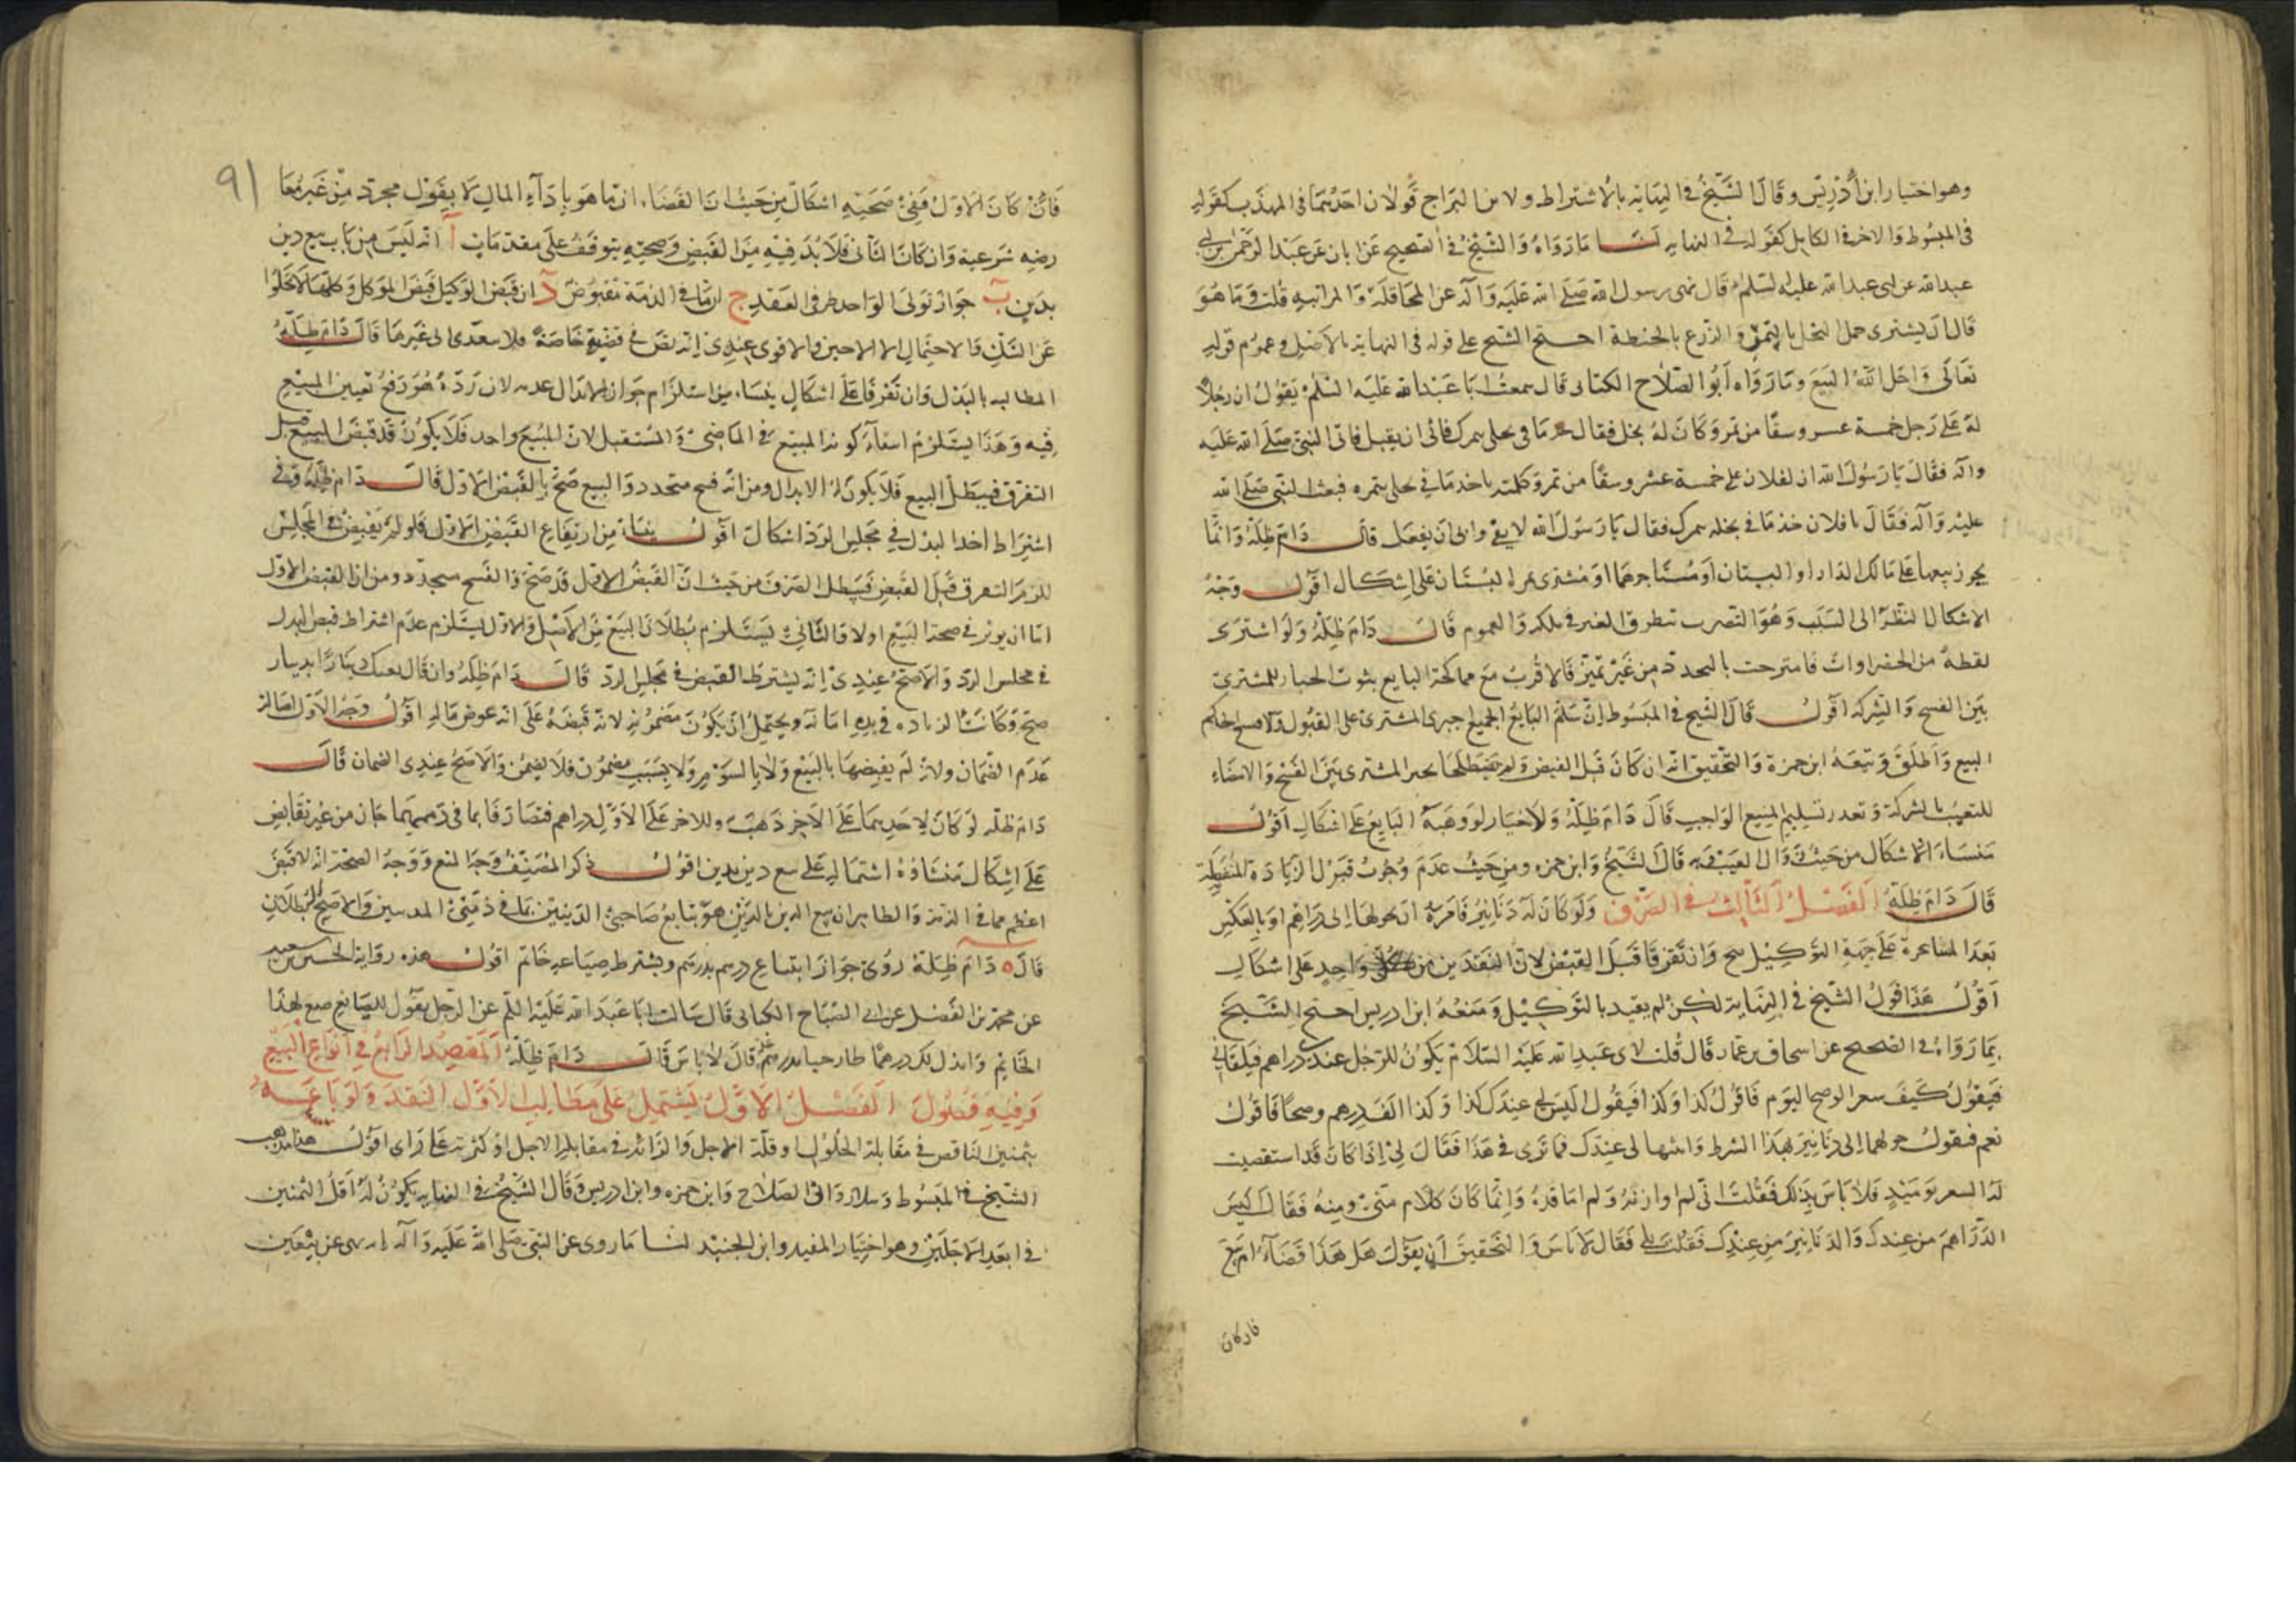 وهو اختيار ابن أدريس وقال الشيخ في النهاية بالاشتراط ولابن البراج قولان احدهما في المهذب كقوله
في المبسوط والاخر في الكامل كقوله في النهايه لنا ما رواه الشيخ في الصحيح عن ابان عن عبد الرحمن بن ابي
عبد الله عن ابي عبد الله عليه السلم قال نهى رسول الله صلى الله عليه وآله عن المحاقلة والمزابنه قلت وما هو
قال ان يشترى حمل النخل بالتمر والزرع بالحنطة احتج الشيخ على قوله في النهاية بالاصل وعموم قوله
تعالى واحل الله البيع وما رواه أبو الصلاح الكنانى قال سمعت ابا عبد الله عليه السلم يقول ان رجلا
له على رجل خمسة عسر وسقا من تمر وكان له نخل فقال خذ ما في نخلى بتمرك فاتى ان يقبل فاتى النبى صلى الله عليه
وآله فقال يا رسول الله ان لفلان على خمسة عشر وسقا من تمر وكلمته ياخذ ما في نخلى بتمره فبعث النبى صلى الله
عليه وآله فقال يا فلان خذ ما في نخله بتمرك فقال يا رسول الله لا يفى وابى أن يفعل قال دام ظله وانما
يجوز بيعها على مالك الدار او البستان او مستاجرهما او مشترى ثمرة البستان على اشكال اقول وجه
الاشكال النظر الى السبب وهو التضرر بتطرق الغير في ملكه والعموم قال دام ظله ولو اشترى
لقطة من الخضراوات فامتزجت بالمتجدد من غير تميز فالاقرب مع مماكحة البايع بثوت الخيار للمشترى
بين الفسح والشركه اقول قال الشيخ في المبسوط ان سلم البايع الجميع جبر المشترى على القبول والا فسح الحاكم
البيع واطلق وتبعه ابن حمزة والتحقيق انه ان كان قبل القبض ولم تحفظ لخا يخير المشترى بين الفسح والامضاء
للتعيب بالشركة وتعذر تسليم المبيع الواجب قال دام ظله ولا خيار لو وهبه البايع على اشكال اقول
منساء الاشكال من حيث زوال العيب وبه قال الشيخ وابن حمزه ومن حيث عدم وجوب قبول الزيادة المنفصلة
قال دام ظله الفصل الثالث في الصرف ولو كان له دنانير فامره ان يحولها الى دراهم او بالعكس
بعد المساعرة على جهة التوكيل صح وان تفرقا قبل القبض لان النقدين من واحد على اشكال
أقول هذا قول الشيخ في النهاية لكن لم يقيد بالتوكيل ومنعه ابن ادريس احتج الشيخ
بما رواه في الصحيح عن اسحاق بن عمار قال قلت لابى عبد الله عليه السلام يكون للرجل عندى دراهم فيلقانى
فيقول كيف سعر الوضح اليوم فاقول كذا وكذا فيقول اليس لى عندك كذا وكذا الف درهم وضحا فاقول
نعم فيقول حولها الى دنانير بهذا السرط واثبتها لى عندك فما ترى في هذا فقال لى اذا كان قد استقصيت
له السعر يوميذ فلا باس بذلك فقلت انى لم اوازنه ولم اناقده وانما كان كلام منى ومنه فقال اليس
الدراهم من عندك والدنانير من عندك فقلت بلى فقال لا باس والتحقيق أن يقول هل هذا قضاء ام بيع
فان كان
٩١
فان كان الاول ففى صحته اشكال من حيث ان القضاء انما هو باداء المال لا بقول مجرد من غير معا
رضه شرعية وان كان الثانى فلا بد فيه من القبض وصحته يتوقف على مقدمات آ انه ليس من باب بيع دين
بدين ب جواز تولى الواحد طرفى العقد ج ان ما في الذمة مقبوض د ان قبض الوكيل قبض الموكل وكلها لا تخلوا
عن الشك فالاحتمال الاحين والاقوى عندى انه نص في قضية خاصة فلا يتعدى الى غيرها قال دام ظله
المطالبه بالبدل وان تفرقا على اشكال ينساء من استلزام جواز الابدال عدمه لان رده هو رفع تعيين المبيع
فيه وهذا يستلزم انتفاء كونه المبيع في الماضى والمستقبل لان المبيع واحد فلا يكون قد قبض المبيع قبل
التفرق فيبطل البيع فلا يكون له الابدال ومن انه فسح متجدد والبيع صح بالقبض الاول قال دام ظله وفى
اشتراط اخذ البدل في مجلس الرد اشكال اقول ينساء من ارتفاع القبض الاول فلو لم يقبض في المجلس
للزم التعرق قبل القبض فيبطل الصرف من حيث ان القبض الاول قد صح والفسح متجدد ومن ان القبض الاول
اما ان يوثر في صحة البيع اولا والثانى يستلزم بطلان البيع من الاصل والاول يستلزم عدم اشتراط قبض البدل
في مجلس الرد والاصح عندى انه يشترط القبض في مجلس الرد قال دام ظله وان قال بعتك دينارا بدينار
صح وكانت الزياده في يده امانه ويحتمل ان يكون مضمونه لانه قبضه على انه عوض ماله اقول وجه الاول اصالة
عدم الضمان ولانه لم يقبضها بالبيع ولا بالسوم ولا بسبب مضمون فلا يضمن والاصح عندى الضمان قال
دام ظله لو كان لاحدهما على الاخر ذهب وللاخر على الاول دراهم فتصارفا بما في ذممهما جاز من غير تقابض
على اشكال منشاؤه اشتماله على بيع دين بدين اقول ذكر المصنف وجه المنع ووجه الصحة انه لا قبض
اعظم مما في الذمة والظاهر ان بيع الدين بالدين هو بتابع صاحبى الدينين بما في ذمتى المدينين والاصح البطلان
قال ه دام ظله روى جواز ابتياع درهم بدرهم ويشترط صياغه خاتم اقول هذه رواية الحسين بن سعيد
عن محمد بن الفضل عن ابى الصباح الكنانى قال سالت ابا عبد الله عليه السلم عن الرجل يقول للصايغ صغ لهذا
الخاتم وابدل لك درهما طازجيا بدرهم غلة قال لا باس قال دام ظله المقصد الرابع في أنواع البيع
وفيه فصول الفصل الاول يشتمل على مطالب الاول النقد ولو باعه
بثمنين الناقص في مقابلة الحلول او قلة الاجل والزائد في مقابله الاجل او كثرته على راى اقول هذا مذهب
الشيخ في المبسوط وسلار وابى الصلاح وابن حمزه وابن ادريس وقال الشيخ في النهايه يكون له اقل الثمنين
في ابعد الاجلين وهو اختيار المفيد وابن الجنيد لنا ما روى عن النبى صلى الله عليه وآله انه نهى عن بيعين